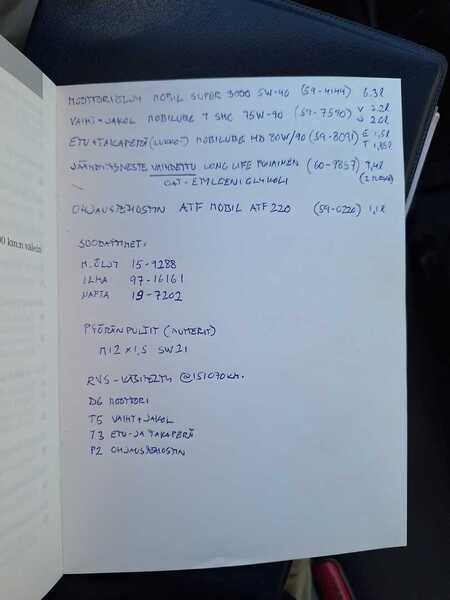 00 km:n välein
MOOTTORIÖLJY MOBIL SUPER 3000 5W-40 (59-4144) 6.3l
VAIHT+JAKOL MOBILUBE 1 SHC 75W-90 (59-7590) V 2.2l
J 2.0l
ETU+TAKAPERÄ (LUKKO!) MOBILUBE HD 80W/90 (59-8091) E 1,5l
T 1,85l
JÄÄHDYTYSNESTE VAIHDETTU LONG LIFE PUNAINEN (60-9857) 7,4l
OAT-ETYLEENIGLYKOLI
OHJAUSTEHOSTIN ATF MOBIL ATF 220 (59-0220) 1,1l
SUODATTIMET:
M.ÖLJY 15-9288
ILMA 97-16161
NAFTA 19-7202
PYÖRÄN PULTIT (MUTTERIT)
M12 x 1,5 SW21
RVS-KÄSITELTY @151070KM.
D6 MOOTTORI
T5 VAIHT+JAKOL
T3 ETU- JA TAKAPERÄ
P2 OHJAUSTEHOSTIN